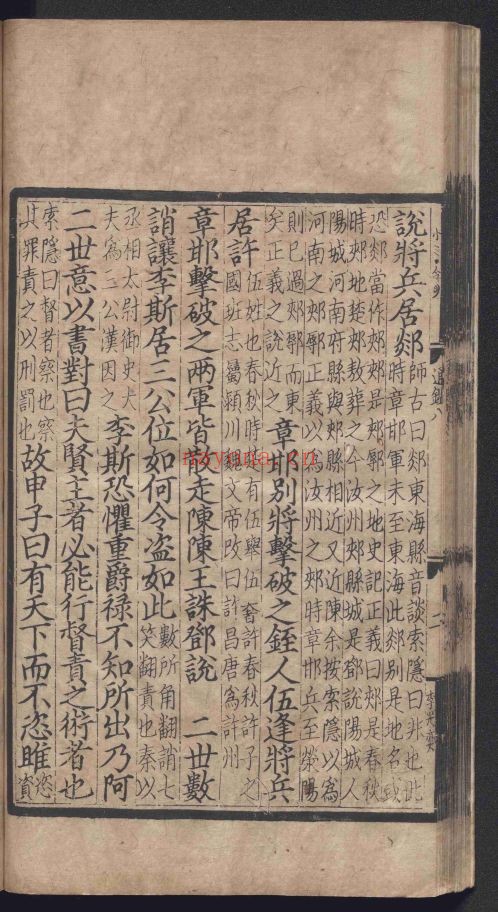 說將兵居郯師古曰郯東海縣音談索隱曰非也此時章邯軍未至東海此郯別是地名或
恐郯當作郟郟是郟鄏之地史記正義曰郟是春秋時郟地楚郟敖葬之今汝州郟縣城是鄧說陽城人
陽城河南府縣與郟縣相近又近陳余按索隱以為河南之郟鄏正義以為汝州之郟時章邯兵至滎陽
則已過郟鄏而東矣正義之說近之 章邯別將擊破之銍人伍逢將兵
居許伍姓也春秋時楚有伍舉伍奢許春秋許子之國班志屬潁川魏文帝改曰許昌唐為許州
章邯擊破之兩軍皆散走陳陳王誅鄧說 二丗數
誚讓李斯居三公位如何令盗如此數所角翻誚七笑翻責也秦以
丞相太尉御史大夫為三公漢因之 李斯恐懼重爵祿不知所出乃阿
二丗意以書對曰夫賢主者必能行督責之術者也
索隱曰督者察也察其罪責之以刑罰也 故申子曰有天下而不恣睢恣資
通鑑八